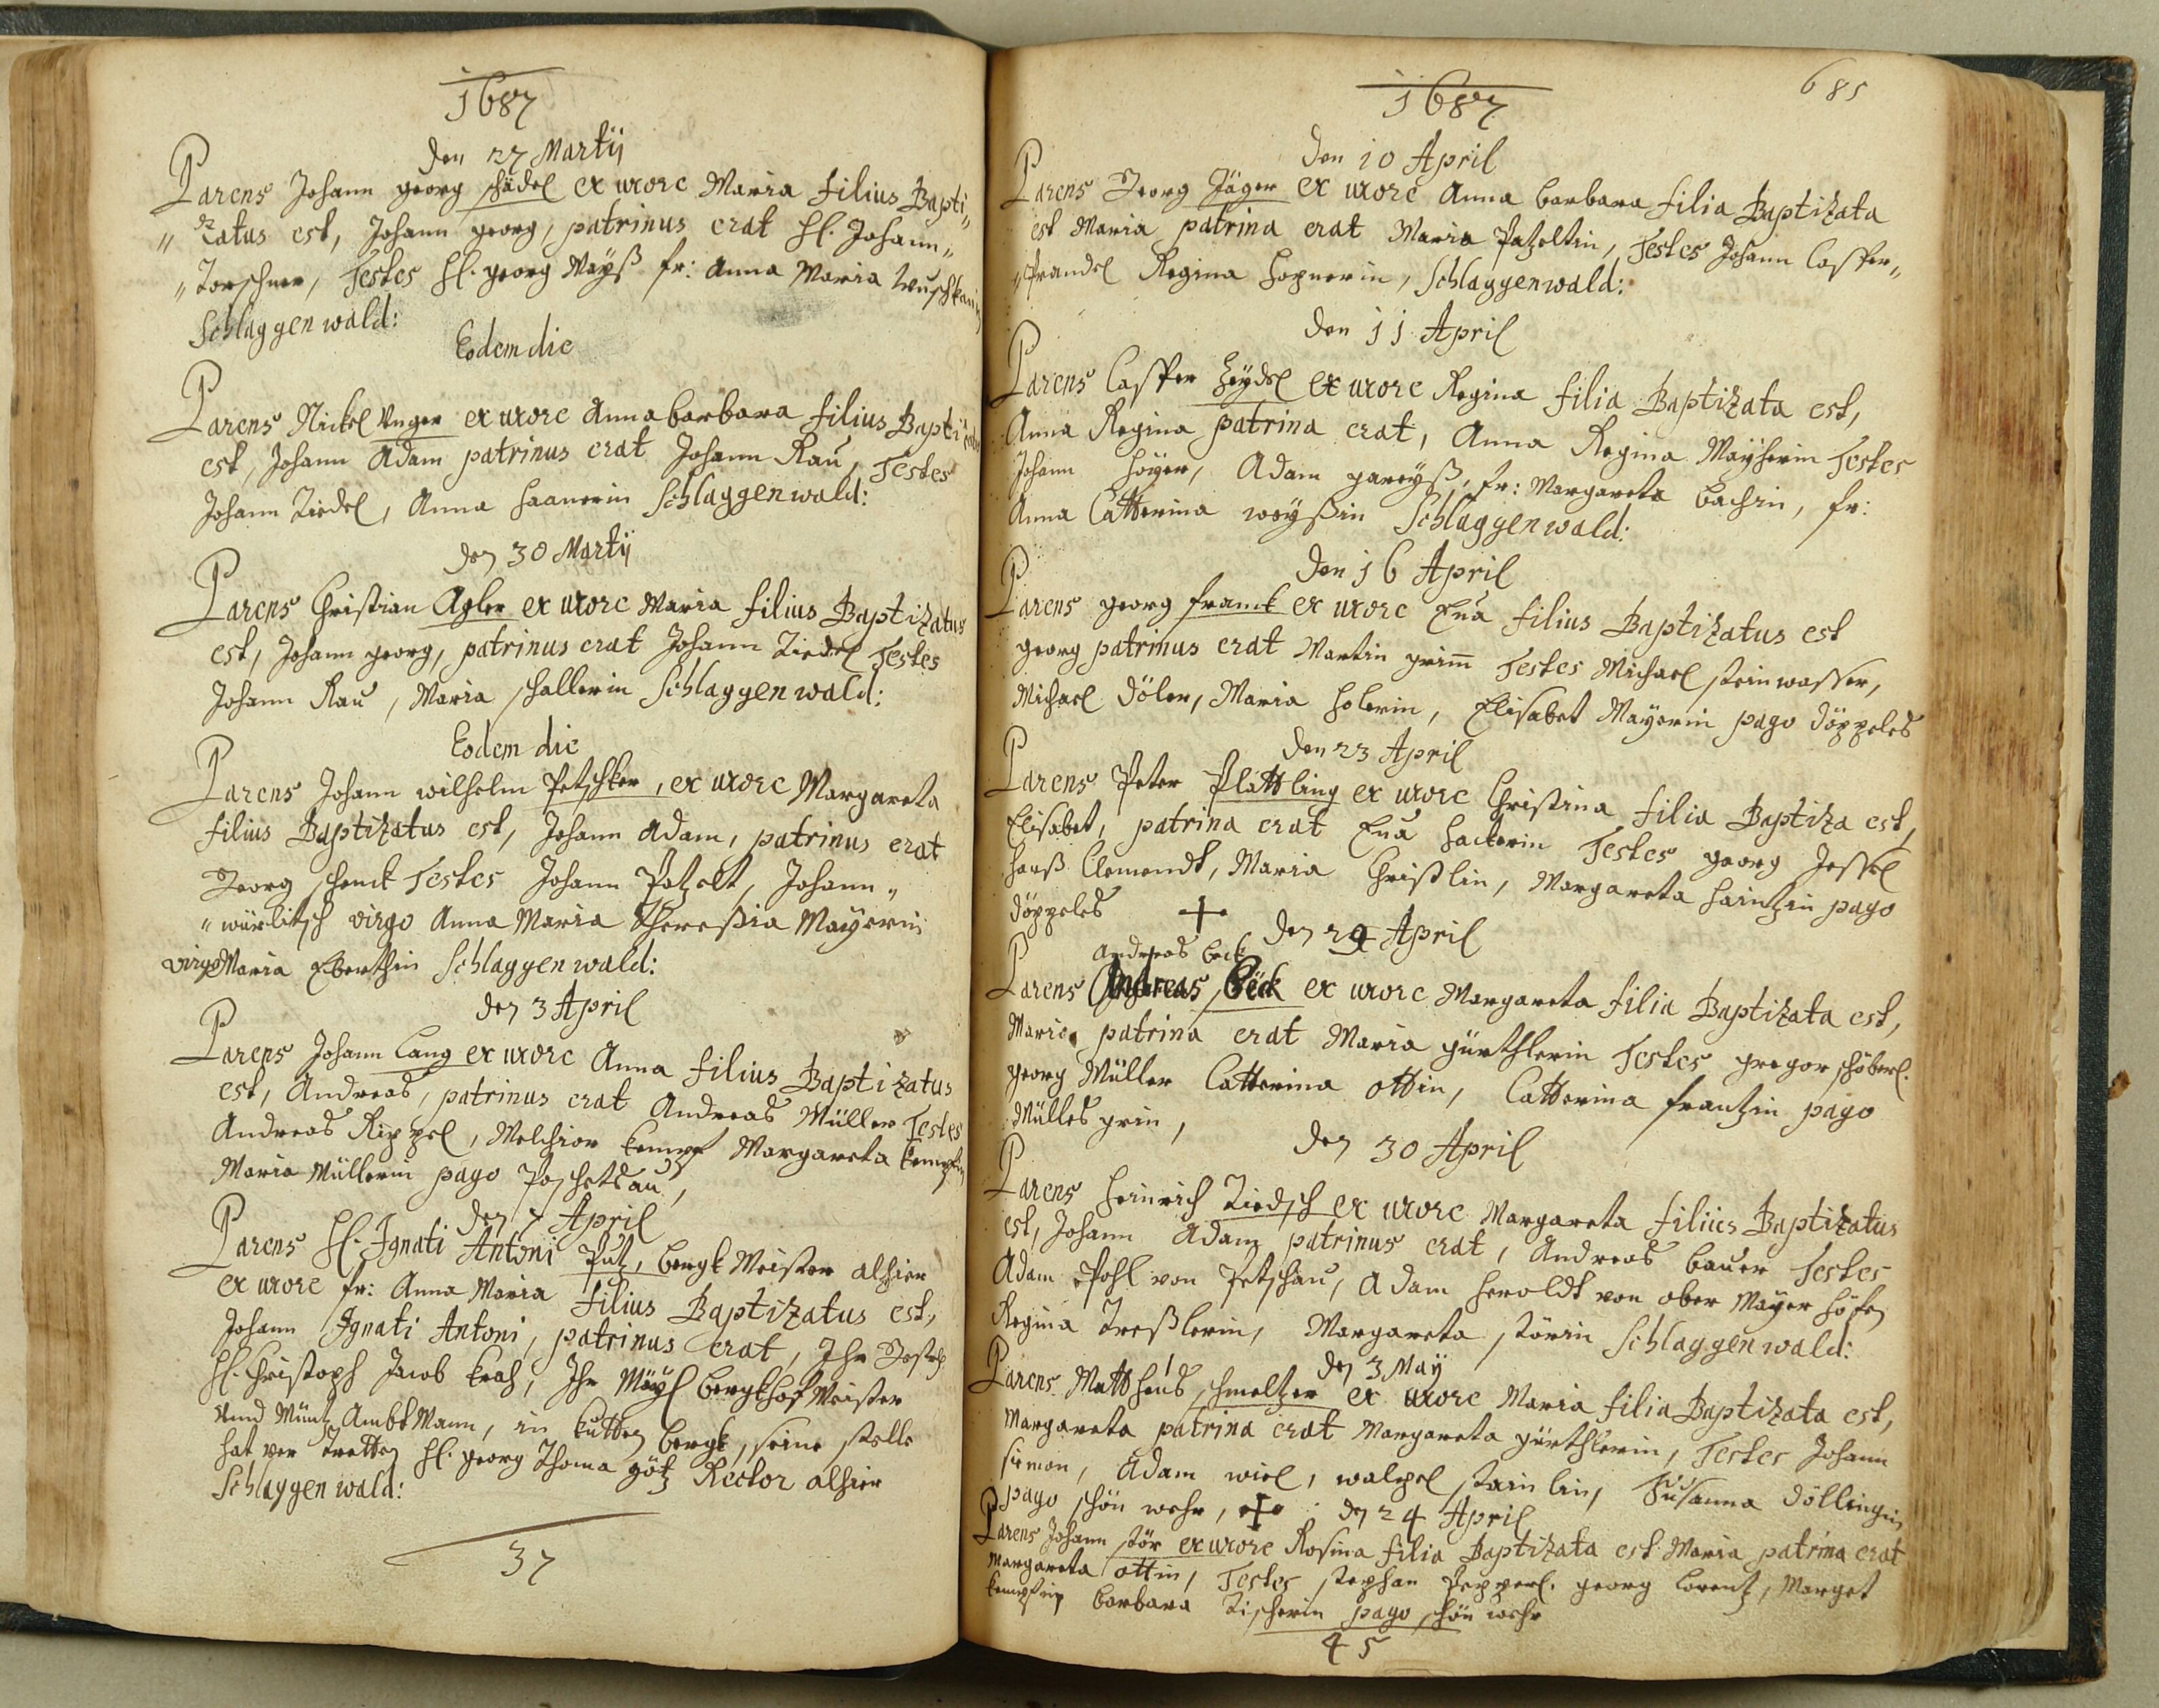 1687
den 27 Martij
Parens Johann georg schädel ex uxore Maria filius Bapti„
„ zatus est, Johann georg, patrinus erat H. Johann„
„ Torschner, Testes H. georg Mayß fr: Anna Maria
Schlaggenwald:
Eodem die
Parens Nickel Unger ex uxore Anna barbara filius Bapti
est, Johann Adam patrinus erat Johann Rau, Testes
Johann Ziedel, Anna haanerin Schlaggenwald:
den 30 Martij
Parens Christian Agler ex uxore Maria filius Baptizatus
est, Johann georg, patrinus erat Johann Ziedel Testes
Johann Rau, Maria schallerin Schlaggenwald:
Eodem die
Parens Johann wilhelm Petschker, ex uxore Margareta
filius Baptizatus est, Johann Adam, patrinus erat
Georg schenck Testes Johann Patzelt, Johann„
„ würlitsch virgo Anna Maria Theresia Mayerin
virgo Maria Eberthin Schlaggenwald:
den 3 April
Parens Johann Lang ex uxore Anna filius Baptizatus
est, Andreas, patrinus erat Andreas Müller Testes
Andreas Rippel, Melchior kempf Margareta kempfin
Maria Müllerin pago Poschetzau,
den 7 April
Parens H. Ignati Antoni Putz, bergk Meister alhier
ex uxore fr: Anna Maria filius Baptizatus est,
Johann Ignati Antoni, patrinus erat, Ihr
H. Christoph Jacob krah, Ihr Mayl bergkhof Meister
Und Müntz Ambt Mann, in kutten bergk, seine stelle
hat ver tretten H. georg Thoma götz Rector alhier
Schlaggenwald:
37
1687
685
den 10 April
Parens Georg Jäger ex uxore Anna barbara filia Baptizata
est Maria patrina erat Maria Patzeltin, Testes Johann Casper„
„ frandel Regina hopnerin, Schlaggenwald:
den 11 April
Parens Casper heydel ex uxore Regina filia Baptizata est,
Anna Regina patrina erat, Anna Regina Mayherin Testes
Johann hoyer, Adam gareyß, fr: Margareta bachin, fr:
Anna Catterina weyßin Schlaggenwald:
den 16 April
Parens georg franck ex uxore Eua filius Baptizatus est
georg patrinus erat Martin grim̄ Testes Michael steinwasser,
Michael Döler, Maria holerin, Elisabet Mayerin pago döppeles
den 23 April
Parens Peter Plattling ex uxore Christina filia Baptiza est,
Elisabet, patrina erat Eua hackerin Testes georg Jessel
hanß Clementt, Maria Christlin, Margareta haintzin pago
döppeles +
den 29 April
Andreas beck
Parens Andreas Böck ex uxore Margareta filia Baptizata est,
Maria patrina erat Maria gürthlerin Testes gregor schöberl.
georg Müller Catterina ottin, Catterina frantzin pago
Mülles grin,
den 30 April
Parens heinrich Ziedsch ex uxore Margareta filius Baptizatus
est, Johann Adam patrinus erat, Andreas bauer Testes
Adam Pohl von Petschau, Adam heroldt von ober Mayer höfen
Regina Treßlerin, Margareta störin Schlaggenwald:
den 3 May
Parens Mattheus schmeltzer ex uxore Maria filia Baptizata est,
Margareta patrina erat Margareta gürthlerin, Testes Johann
siemon, Adam wiel, walpel stainlin, Susanna döllingin
pago schön wehr, + den 24 April
Parens Johann stör ex uxore Rosina filia Baptizata est Maria patrina erat
Margareta ottin, Testes stephan Pepperl. georg Lorentz, Marget
kempfin barbara Tischerin pago schön wehr
45